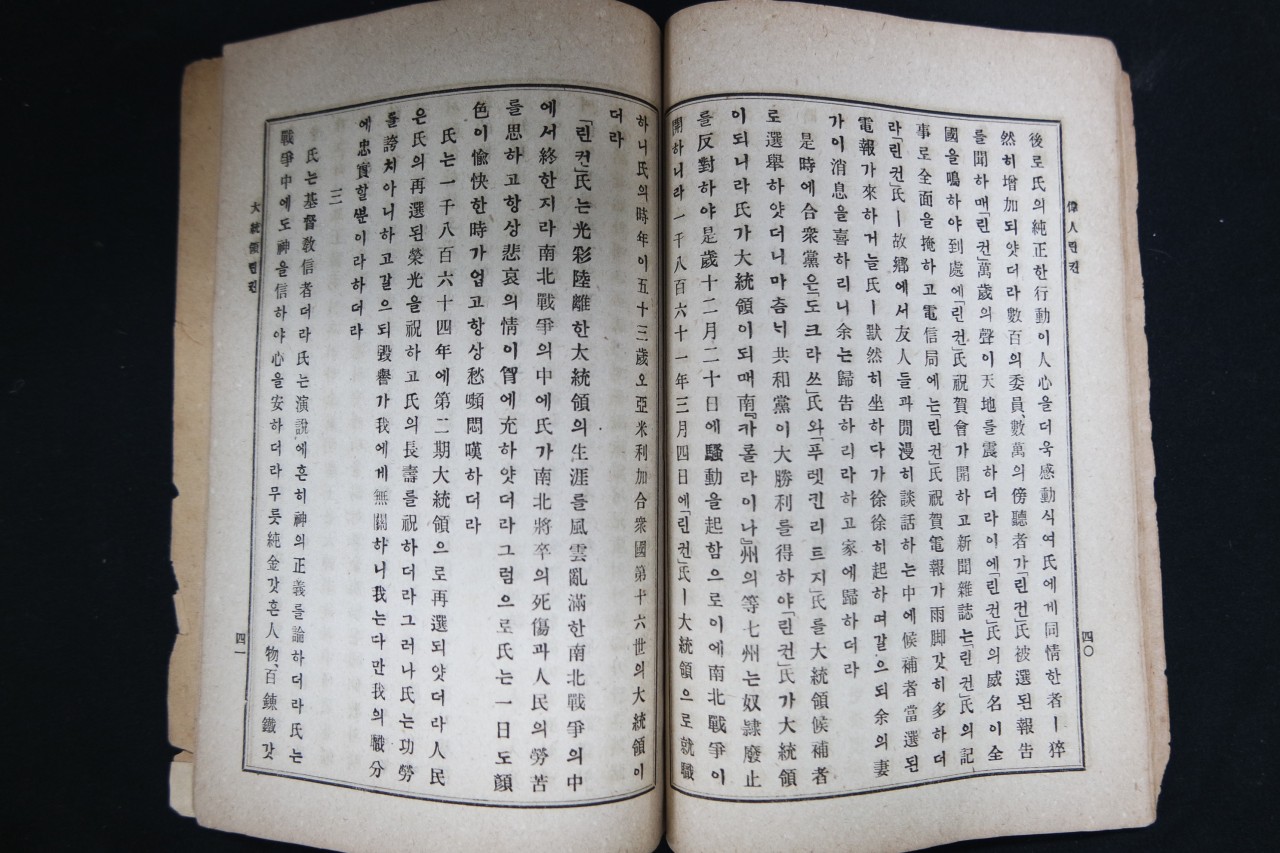 偉人린컨
後로氏의純正한行動이人心을더욱感動식여氏에게同情한者ㅣ猝
然히增加되얏더라數百의委員、數萬의傍聽者가「린컨」氏被選된報告
를聞하매「린컨」萬歲의聲이天地를震하더라이에「린컨」氏의威名이全
國을鳴하야到處에「린컨」氏祝賀會가開하고新聞雜誌는「린컨」氏의記
事로全面을掩하고電信局에는「린컨」氏祝賀電報가雨脚갓히多하더
라「린컨」氏ㅣ故鄕에서友人들과閒漫히談話하는中에候補者當選된
電報가來하거늘氏ㅣ默然히坐하다가徐徐히起하며갈으되余의妻
가이消息을喜하리니余는歸告하리라하고家에歸하더라
是時에合衆黨은「도크라쓰」氏와「푸렛킨리트지」氏를大統領候補者
로選擧하얏더니마츰늬共和黨이大勝利를得하야「린컨」氏가大統領
이되니라氏가大統領이되매南『카롤라이나』州의等七州는奴隷廢止
를反對하야是歲十二月二十日에騷動을起함으로이에南北戰爭이
開하니라一千八百六十一年三月四日에「린컨」氏ㅣ大統領으로就職
四〇
하니氏의時年이五十三歲오亞米利加合衆國第十六世의大統領이
더라
「린컨」氏는光彩陸離한大統領의生涯를風雲亂滿한南北戰爭의中
에서終한지라南北戰爭의中에氏가南北將卒의死傷과人民의勞苦
를思하고항상悲哀의情이胷에充하얏더라그럼으로氏는一日도顔
色이愉快한時가업고항상愁嚬悶嘆하더라
氏는一千八百六十四年에第二期大統領으로再選되얏더라人民
은氏의再選된榮光을祝하고氏의長壽를祝하더라그러나氏는功勞
를誇치아니하고갈으되毀譽가我에게無關하니我는다만我의職分
에忠實할뿐이라하더라
三
氏는基督敎信者더라氏는演說에흔히神의正義를論하더라氏는
戰爭中에도神을信하야心을安하더라무릇純金갓흔人物、百鍊鐵갓
大統領린컨
四一